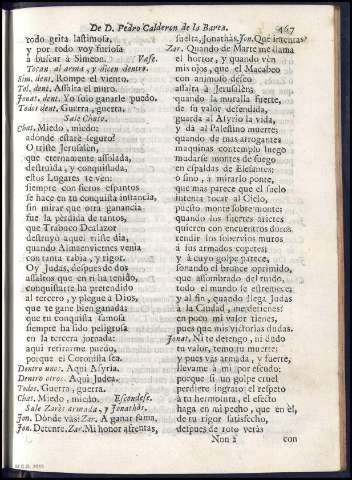 De D. Pedro Calderon de la Barca. 467
todo grita lastimosa,
y por todo voy furiosa
à buscar à Simeon. Vase.
Tocan al arma, y dicen dentro.
Sim. dent. Rompe el viento.
Tol. dent. Assalta el muro.
Jonat. dent. Yo solo ganarle puedo.
Todos dent. Guerra, guerra.
Sale Chato.
Chat. Miedo, miedo;
adònde estarè seguro?
O triste Jerusalèn,
que eternamente assolada,
destruida, y conquistada,
estos Lugares te vèn:
siempre con fieros espantos
se hace en tu conquista instancia,
sin mirar que otra ganancia
fue la pèrdida de tantos,
que Trabuco Dcalazor
destruyò aquel triste dia,
quando Almaenvientes venia
con tanta rabia, y rigor.
Oy Judas, despues de dos
assaltos que en ti ha tenido,
conquistarte ha pretendido
al tercero, y plegue à Dios,
que te gane bien ganada;
que tu conquista famosa
siempre ha sido peligrosa
en la tercera jornada:
aqui retirarme puedo,
porque el Coronista sea.
Dentro unos. Aqui Asyria.
Dentro otros. Aqui Judea.
Todos. Guerra, guerra.
Chat. Miedo, miedo. Escondese.
Sale Zarès armada, y Jonathàs.
Jon. Dònde vàs? Zar. A ganar fama.
Jon. Detente. Zar. Mi honor afrentas,
suelta, Jonathàs. Jon. Què intentas?
Zar. Quando de Marte me llama
el horror, y quando vèn
mis ojos, que el Macabeo
con animoso deseo
assalta à Jerusalèn;
quando la muralla fuerte,
de su valor defendida,
guarda al Asyrio la vida,
y dà al Palestino muerte;
quando de mas arrogantes
maquinas contemplo luego
mudarse montes de fuego
en espaldas de Elefantes;
ò sino, à mirarlo ponte,
que mas parece que el suelo
intenta tocar al Cielo,
puesto monte sobre monte:
quando sus fuertes arietes
quieren con encuentros duros
rendir los sobervios muros
à sus armados copetes;
y à cuyo golpe parece,
sonando el bronce oprimido,
que assombrado del ruido,
todo el mundo se estremece:
y al fin, quando llega Judas
à la Ciudad, me detienes?
en poco mi valor tienes,
pues que mis victorias dudas.
Jonat. Ni te detengo, ni dudo
tu valor, temo tu muerte;
y pues vàs armada, y fuerte,
llevame à mi por escudo:
porque si un golpe cruel
perdiere ingrato el respeto
à tu hermosura, el efecto
haga en mi pecho, que en èl,
de tu rigor satisfecho,
despues de roto veràs
Non 2 con